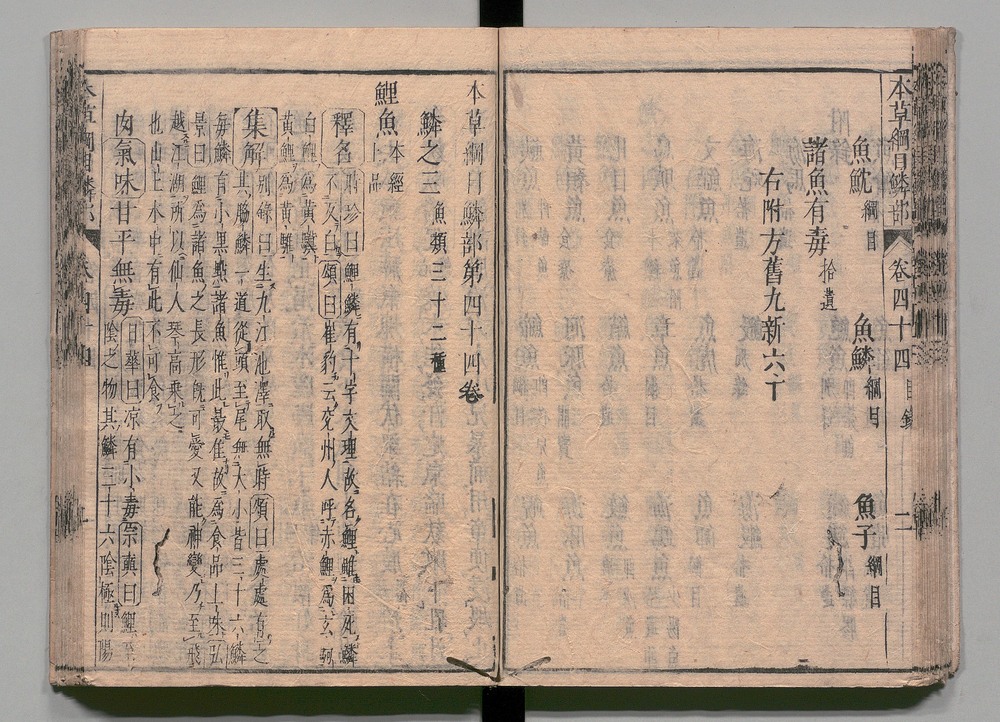 本草綱目鱗部 卷四十四 目錄 二
魚魫 綱目 魚鱗 綱目 魚子 綱目
諸魚有毒 拾遺
右附方舊九新六十
本草綱目鱗部第四十四卷
鱗之三 魚類三十二種
鯉魚 本經上品
釋名 時珍曰鯉鱗有十字文理故名鯉雖困死鱗
不反白 頌曰崔豹云兗州人呼赤鯉爲玄駒
白鯉爲黃驥
黃鯉爲黃騅
集解 別錄曰生九江池澤取無時 頌曰處處有之
其脇鱗一道從頭至尾無大小皆三十六鱗
每鱗有小黑點諸魚惟此最佳故爲食品上味 弘
景曰鯉爲諸魚之長形旣可愛又能神變乃至飛
越江湖所以仙人琴高乘之
也山上水中有此不可食
肉 氣味 甘平無毒 日華曰凉有小毒 宗奭曰鯉至
陰之物其鱗三十六陰極則陽